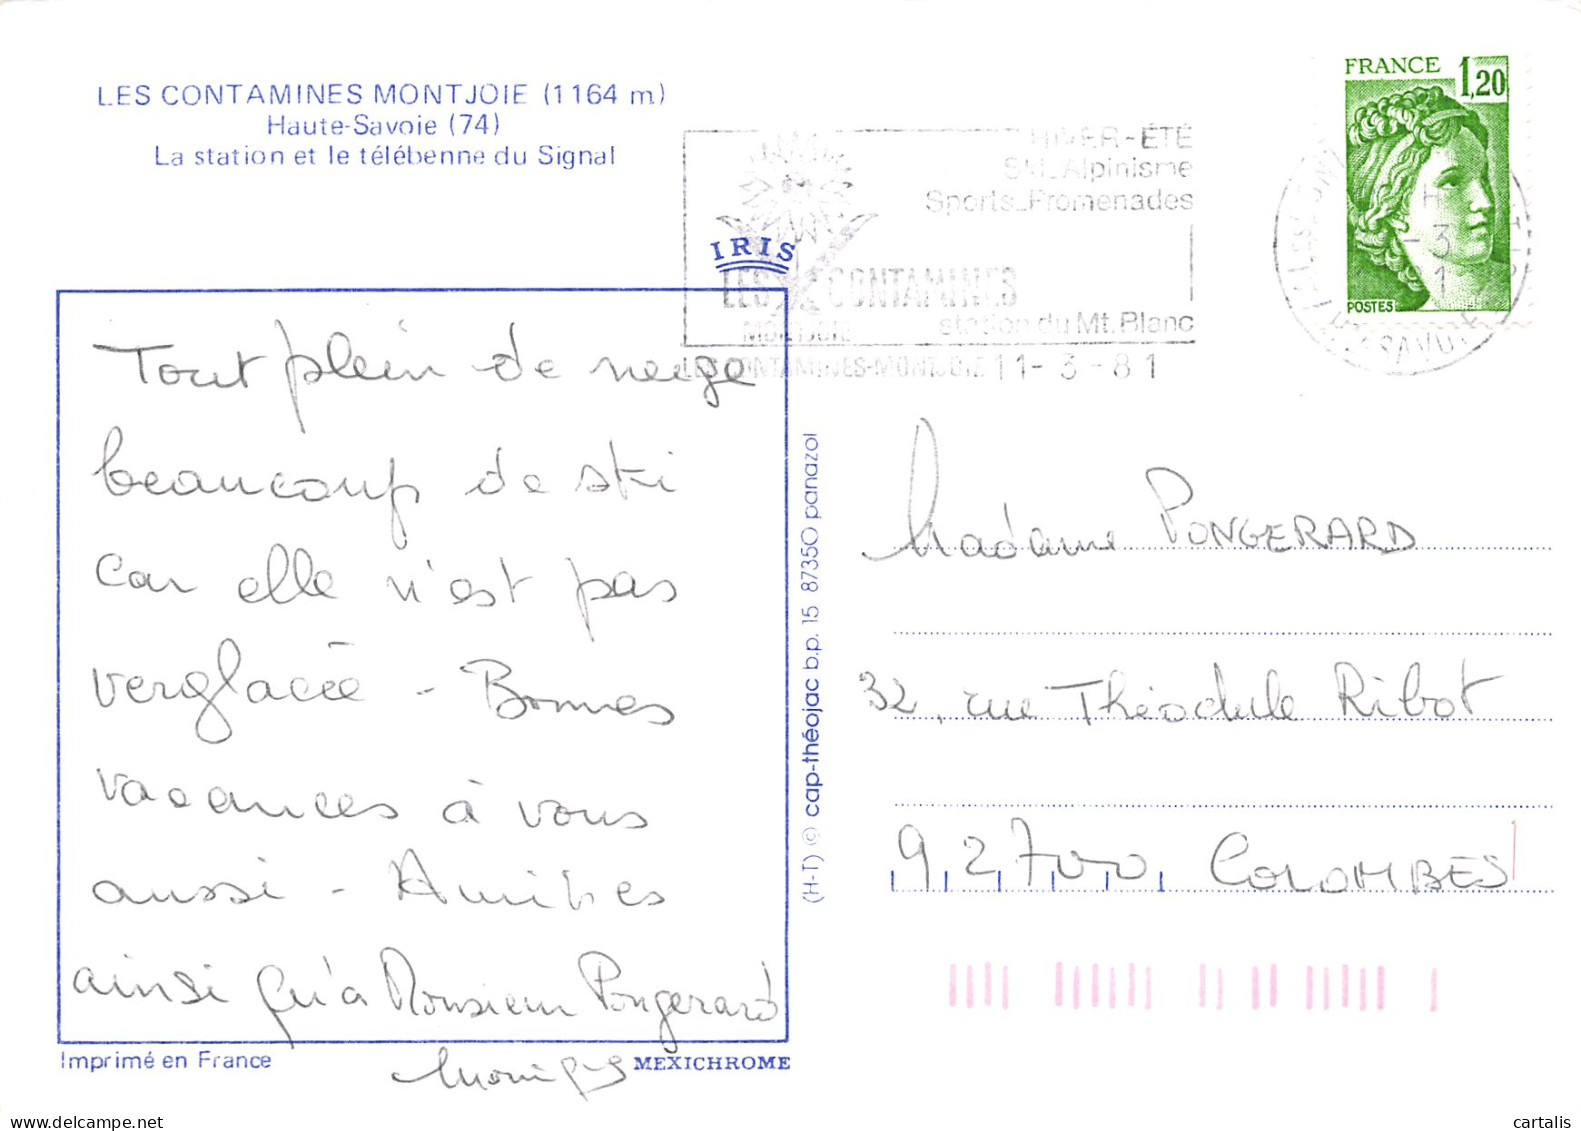 LES CONTAMINES MONTJOIE (1164 m)
Haute-Savoie (74)
La station et le télébenne du Signal
HIVER-ÉTÉ
SKI_Alpinisme
Sports_Promenades
LES CONTAMINES
MONTJOIE
station du Mt. Blanc
LES CONTAMINES-MONTJOIE 11-3-81
FRANCE 1,20
POSTES
IRIS
Tout plein de neige
beaucoup de ski
car elle n'est pas
verglacée - Bonnes
vacances à vous
aussi - Amitiés
ainsi qu'à Monsieur Pongerard
Monique
Imprimé en France
MEXICHROME
(H-T) © cap-théojac b.p. 15 87350 panazol
Madame PONGERARD
32, rue Théodule Ribot
92700 COLOMBES
cartalis